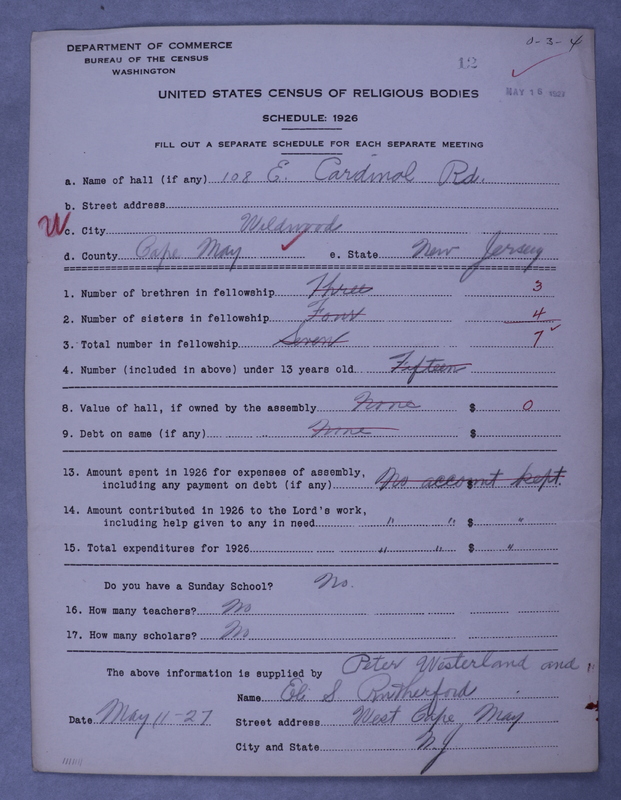 DEPARTMENT OF COMMERCE
BUREAU OF THE CENSUS
WASHINGTON
0-3-4
12
MAY 16 1927
UNITED STATES CENSUS OF RELIGIOUS BODIES
SCHEDULE: 1926
FILL OUT A SEPARATE SCHEDULE FOR EACH SEPARATE MEETING
a. Name of hall (if any) 108 E. Cardinal Rd.
b. Street address
W c. City Wildwood
d. County Cape May e. State New Jersey
1. Number of brethren in fellowship Three 3
2. Number of sisters in fellowship Four 4
3. Total number in fellowship Seven 7
4. Number (included in above) under 13 years old Fifteen
8. Value of hall, if owned by the assembly None $ 0
9. Debt on same (if any) None $
13. Amount spent in 1926 for expenses of assembly,
including any payment on debt (if any) No account kept. $
14. Amount contributed in 1926 to the Lord's work,
including help given to any in need " " $ "
15. Total expenditures for 1926 " " $ "
Do you have a Sunday School? No.
16. How many teachers? No
17. How many scholars? No
The above information is supplied by Peter Westerland and
Name Eli S Rutherford
Date May 11-27 Street address West Cape May
City and State N.J